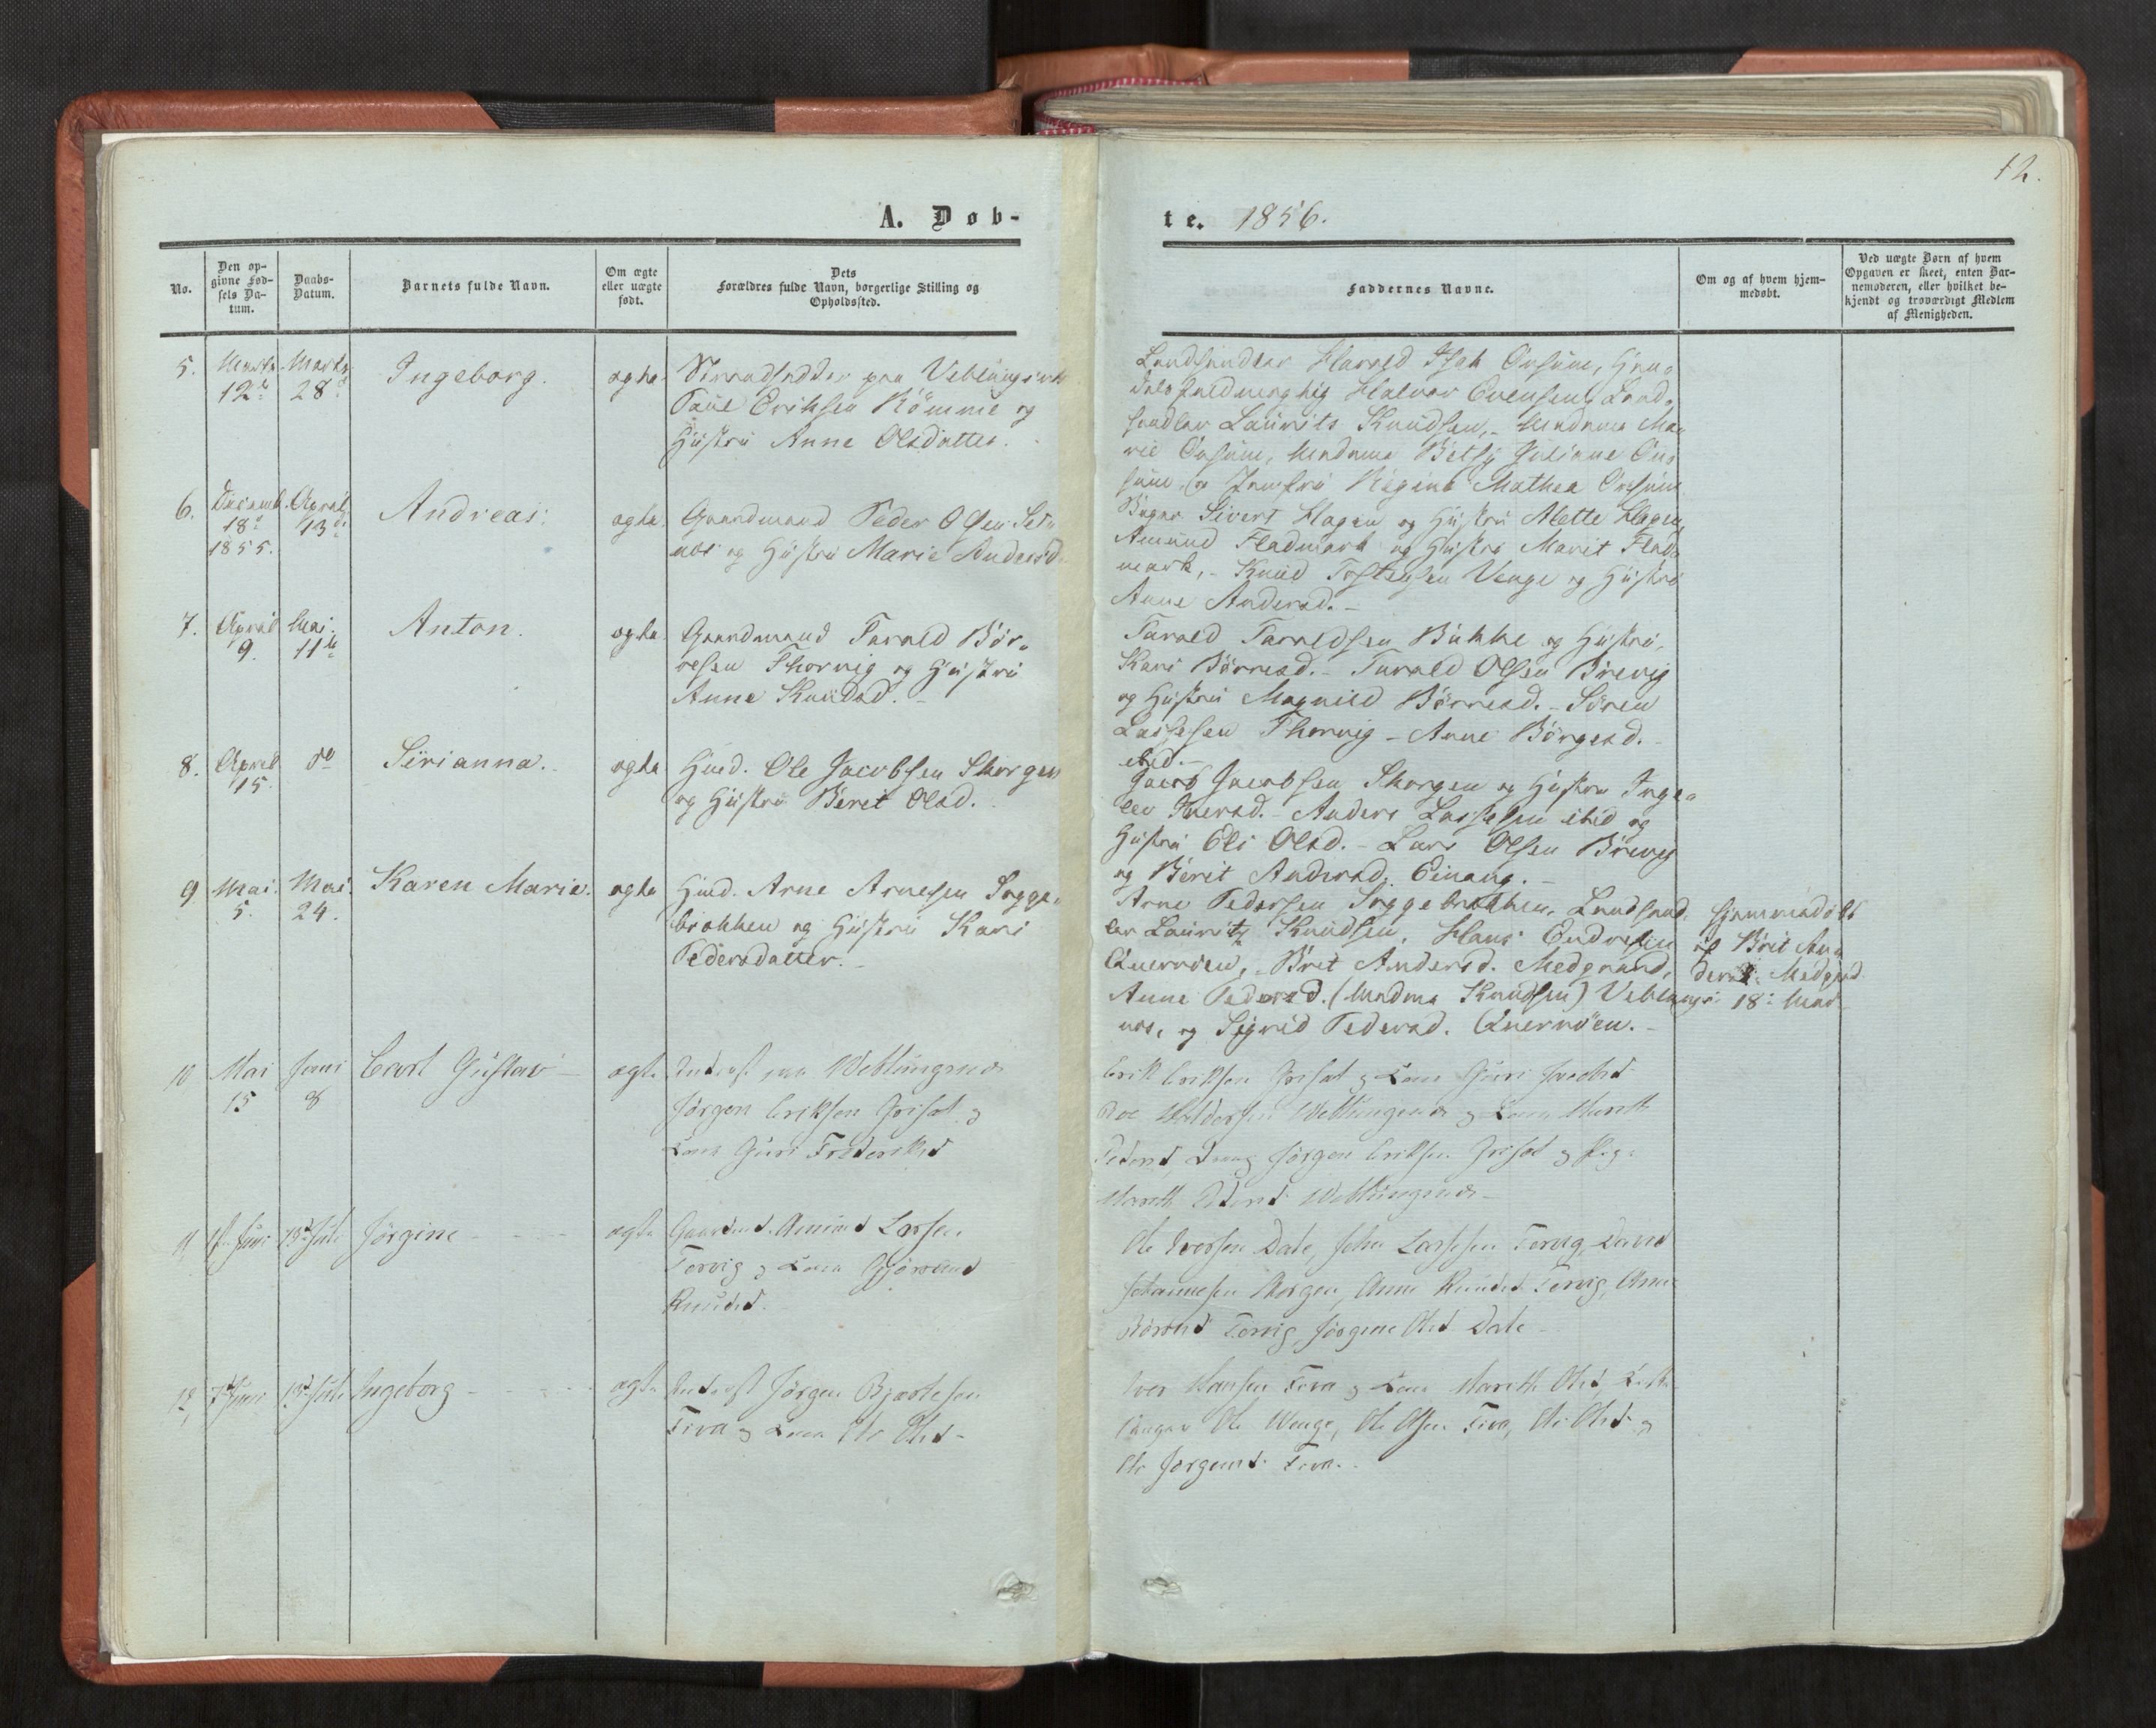 12.
A. Døb-
te. 1856.
No.
Den op-
givne Fød-
sels Da-
tum.
Daabs-
Datum.
Barnets fulde Navn.
Om ægte
eller uægte
født.
Dets
Forældres fulde Navn, borgerlige Stilling og
Opholdssted.
Faddernes Navne.
Om og af hvem hjem-
medøbt.
Ved uægte Børn af hvem
Opgaven er skeet, enten Bar-
nemoderen, eller hvilket be-
kjendt og troværdigt Medlem
af Menigheden.
5.
Marts
12
Marts
28
Ingeborg.
ægte
Strandsidder paa Veblungsn
Poul Eriksen Römme og
Hüstrü Anne Olsdatter.
Landhandler Harald Onsüm,
Halvor Evensen, Land-
handler Laürits Knüdsen, Madame Ma-
rie Onsüm, Madame Betsy Jüliane On-
süm, og Jomfrü Regine Mathea Onsüm
6.
Decemb.
18
1855.
April
13
Andreas.
ægte
Gaardmand Peder Olsen Set-
nes og Hüstrü Marie Andersd.
Sivert Hagen og Hüstrü Mette Hagen,
Amünd Fladmark og Hüstrü Marit Flad-
mark, - Knüd Tostensen Venge og Hüstrü
Anne Andersd. -
7.
April
9.
Mai
11te
Anton.
ægte
Gaardmand Tarald Bör-
resen Thorvig og Hüstrü
Anne Knüdsd. -
Tarald Taraldsen Bakke og Hüstrü
Kari Börresd. - Tarald Olsen Brevig
og Hüstrü Magnild Börresd. - Sören
Lassesen Thorvig - Anne Börgesd.
ibid. -
8.
April
15.
do
Sirianna.
ægte
Hmd. Ole Jacobsen Skorgen
og Hüstrü Berit Olsd.
Jacob Jacobsen Skorgen og Hüstrü Inge-
lev Iversd. - Anders Lassesen ibid og
Hüstrü Eli Olsd. - Lars Olsen Brevig
og Berit Andersd. Einang. -
9
Mai
5.
Mai
24.
Karen Marie.
ægte
Hmd. Arne Arnesen Sogge-
brokken og Hüstrü Kari
Pedersdatter. -
Arne Pedersen Soggebrokken, Landhand-
ler Laüritz Knüdsen, Hans Endresen
Qvernöen, - Brit Andersd. Medgaard,
Anne Pedersd. (Madme Knüdsen) Veblungs-
nes, og Sigrid Pedersd. Qvernöen. -
hjemmedöbt
af Brit An-
dersd. Medgrd
18 Mai
10
Mai
15
Juni
8
Carl Güstav
ægte
Inderst paa Weblüngsnes
Jörgen Eriksen Griset og
Kone Güri Frederiksd
Erik Eriksen Griset og Kone Güri Jacobsd
Weblüngsnes og Kone Mareth
Pedersd, Jörgen Eriksen Griset og Pige
Mareth Weblüngsnes -
11
Juni
Juli
Jörgine
ægte
Gaardmd. Amünd Larsen
Torvig og Kone
Knüdsd.
Ole Iversen Dale, John Lassesen Torvig,
Johannesen Skorgen, Anne Knudsd Torvig, Anne
Torvig, Jörgine Olsd Dale -
12,
7 Juni
Juli
Ingeborg
ægte
Inderst Jörgen Bjartesen
Fiva og Kone Eli Olsd -
Iver Hansen Fiva og Kone Mareth Olsd,
Ungkar Ole Wenge, Ole Olsen Fiva, Eli Olsd og
Jörgensd. Fiva.